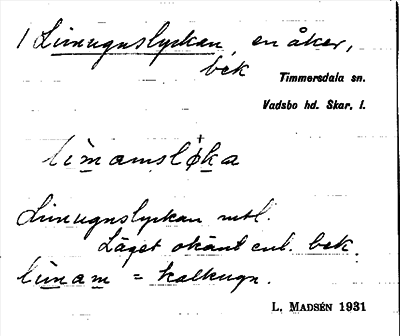 1 Limugnslyckan, en åker,
bek
Timmersdala sn.
Vadsbo hd. Skar. l.
limamsløka
Limugnslyckan mtl.
Läget okänt enl. bek.
limam = kalkugn.
L. MADSÉN 1931